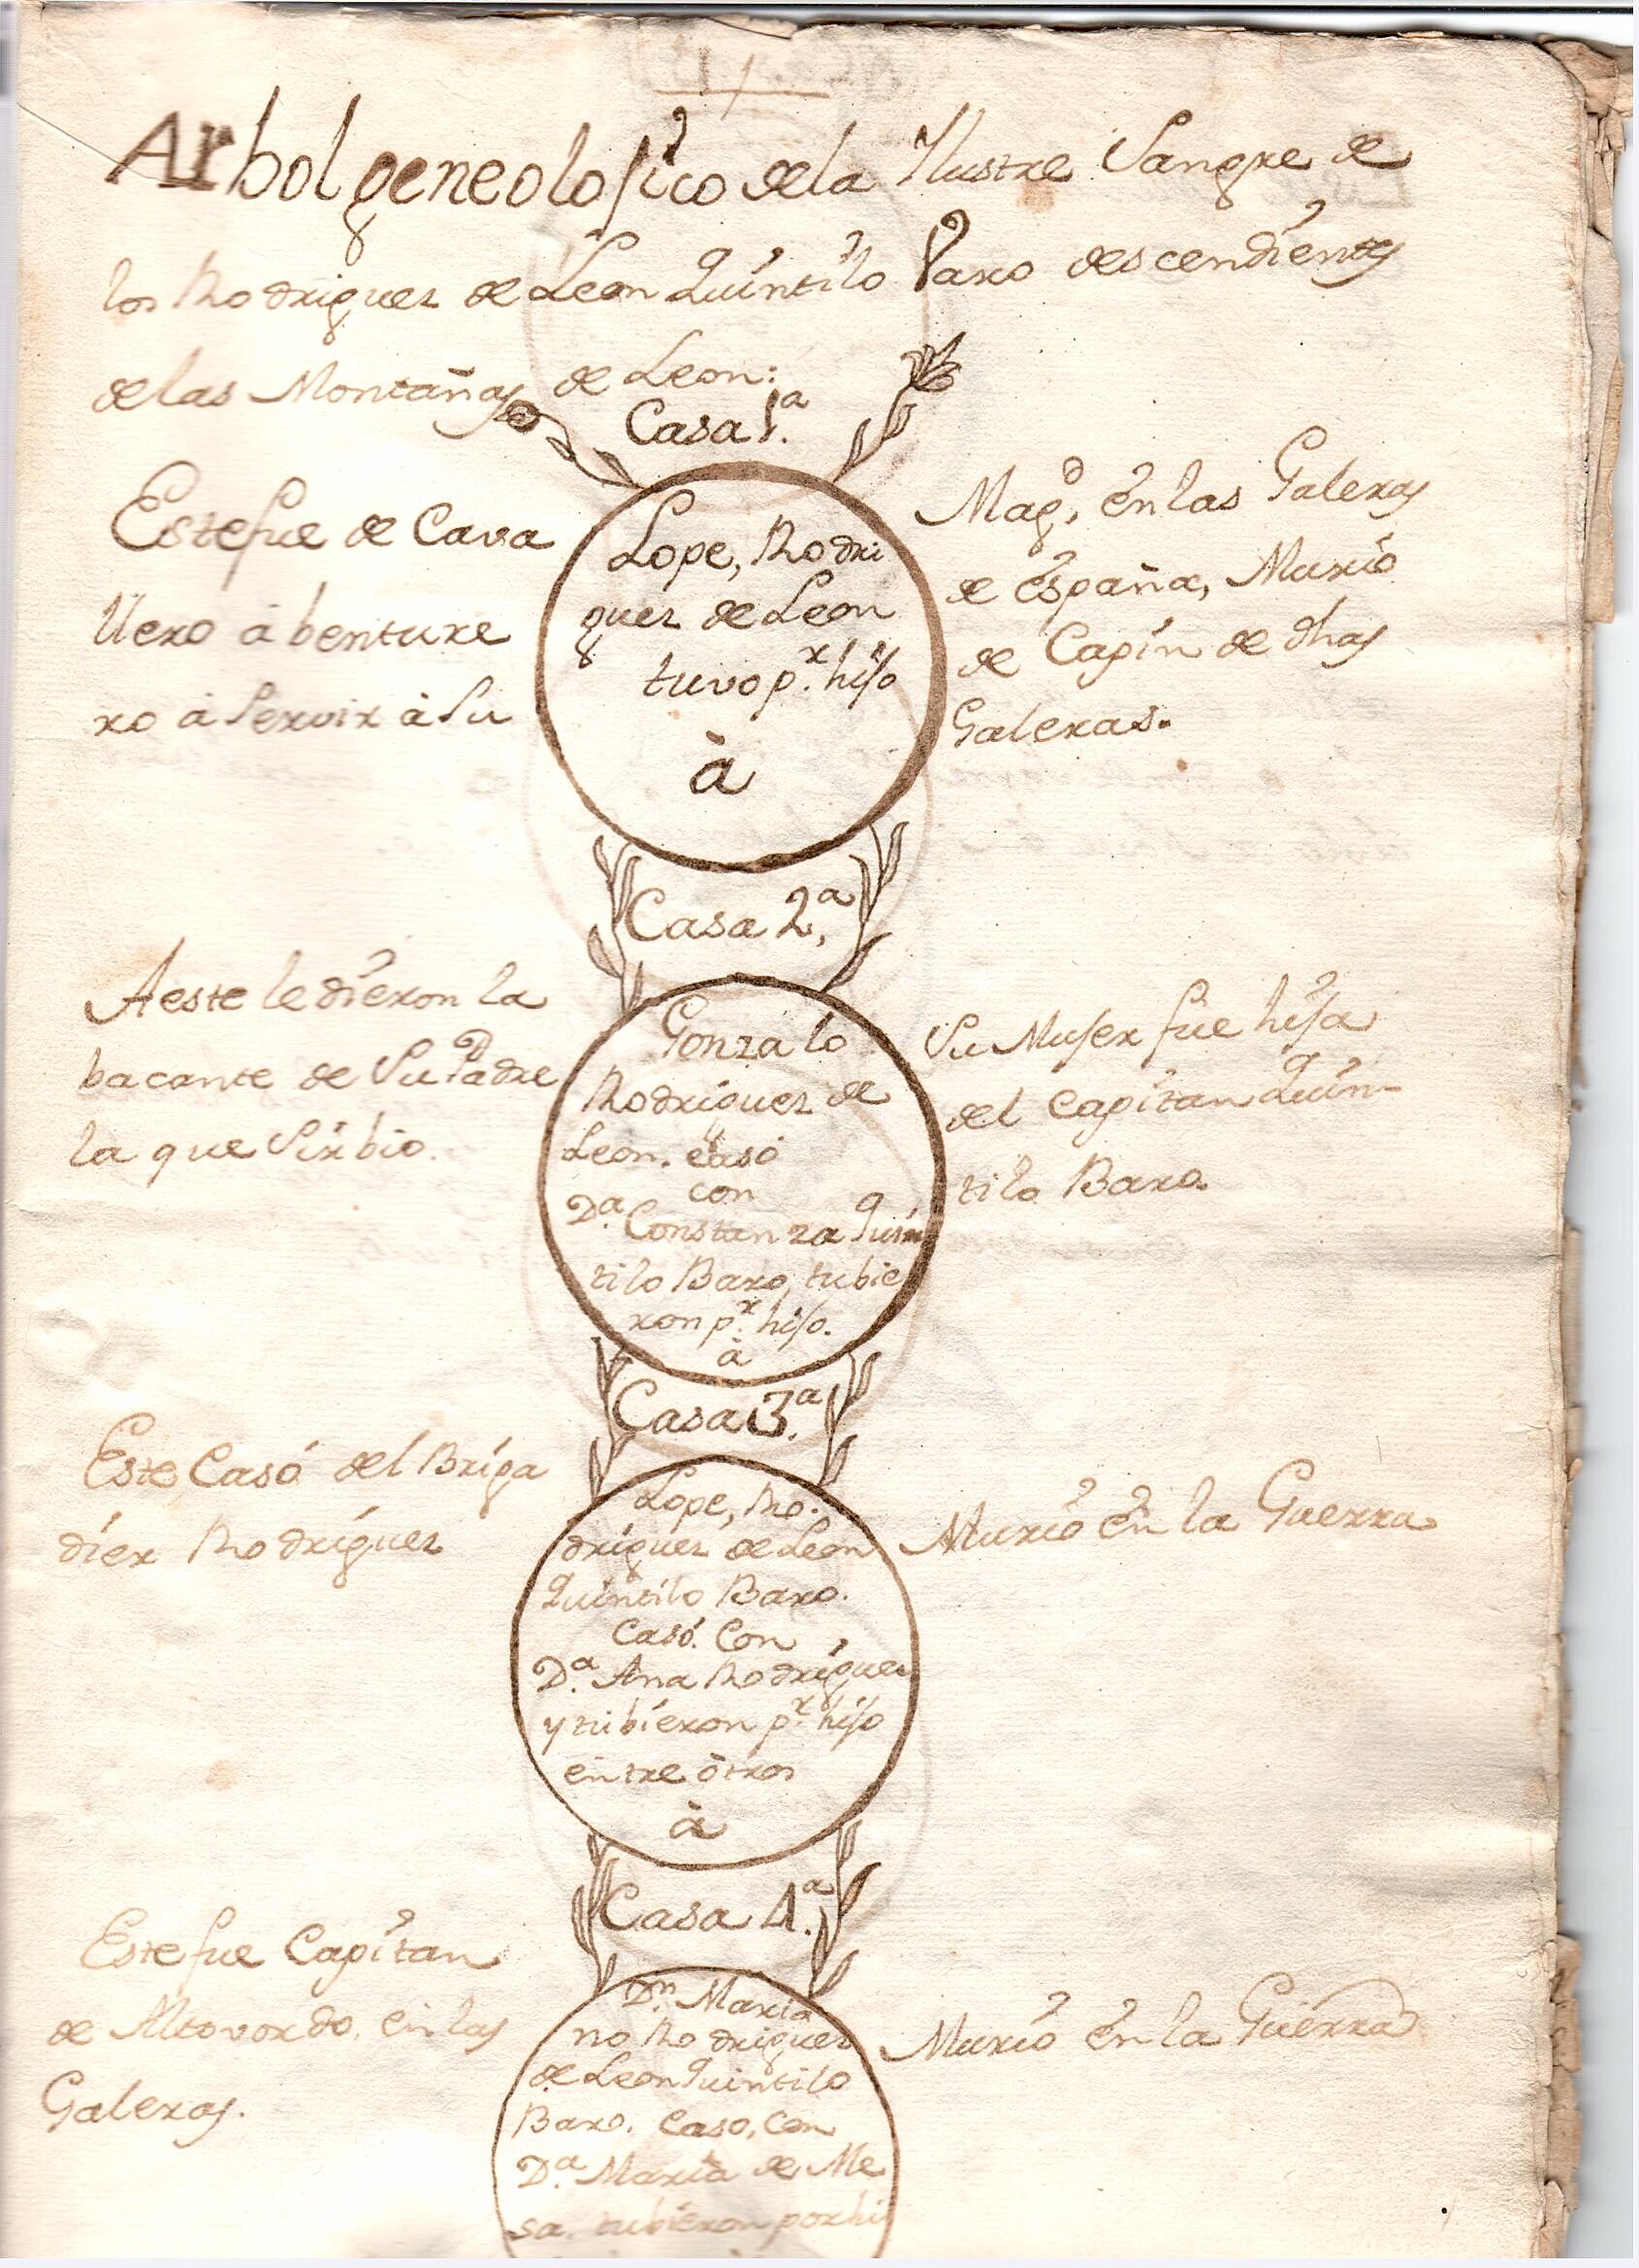 Arbol geneolojico de la Ilustre Sangre de
los Rodriguez de Leon Quintilo Varo descendientes
de las Montañas de Leon:
Casa 1.ª
Este fue de Cava
llero à benture
ro à Servir à Su
Lope, Rodri
guez de Leon
tuvo p.r hijo
à
Mag.d, en las Galeras
de España, Murió
de Capin de dhas
Galeras.
Casa 2,ª
A este le dieron la
bacante de Su Padre
la que Sirbio.
Gonzalo
Rodriguez de
Leon. casó
con
D.ª Constanza Quin
tilo Baro, tubie
ron p.r hijo.
à
Su Mujer fue hija
del Capitan Quin-
tilo Baro.
Casa 3.ª
Este Casó del Briga
dier Rodriguez
Lope, Ro.
driguez de Leon
Quintilo Baro.
Casó. Con
D.ª Ana Rodriguez
y tubieron p.r hijo
entre òtros
à
Murió en la Guerra
Casa 4.ª
Este fue Capitan
de Altovordo. en las
Galeras.
D.n Maria
no Rodriguez
de Leon Quintilo
Baro. Caso, con
D.ª Maria de Me
sa. tubieron por hi
Murió en la Guerra